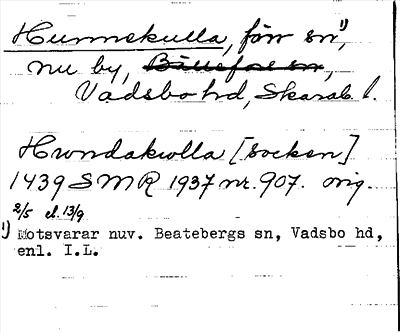 Hunnekulla, förr sn¹⁾,
nu by,
Vadsbo hd, Skarab. l.
Hwndakwlla [socken]
1439 SMR 1937 nr. 907. orig.
2/5 el. 13/9
1) Motsvarar nuv. Beatebergs sn, Vadsbo hd,
enl. I.L.